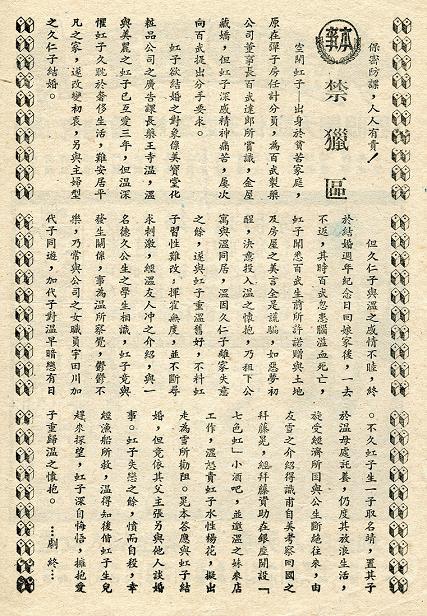 保密防諜，人人有責！
本事
禁獵區
空閒虹子—出身於貧苦家庭，
原在彈子房任計分員，為百武製藥
公司董事長百武達郎所賞識，金屋
藏嬌，但虹子深感精神痛苦，屢次
向百武提出分手要求。
虹子欲結婚之對象係美寶堂化
粧品公司之廣告課長藥王寺溫，溫
與美麗之虹子已互愛三年，但溫深
懼虹子久耽於奢侈生活，難安居平
凡之家，遂改變初衷，另與主婦型
之久仁子結婚。
但久仁子與溫之感情不睦，終
於結婚週年紀念日回娘家後，一去
不返，其時百武忽患腦溢血死亡，
虹子聞悉百武生前所許諾贈與土地
及房屋之美言全是謊騙，如惡夢初
醒，決意投入溫之懷抱，乃租下公
寓與溫同居，溫因久仁子離家失意
之餘，遂與虹子重溫舊好，不料虹
子習性難改，揮霍無度，並不斷尋
求刺激，經溫友人冲之介紹，與一
名德久公生之學生相識，虹子竟與
發生關係，事為溫所察覺，鬱鬱不
樂，乃常與公司之女職員宇田川加
代子同遊，加代子對溫早暗戀有日
。不久虹子生一子取名晴，置其子
於溫母處託養，仍度其放浪生活，
旋受經濟所困與公生斷絕往來，由
友雪之介紹得識甫自美考察回國之
拜藤晃，經拜藤資助在銀座開設「
七色虹」小酒吧，並邀溫之妹來店
工作，溫怒責虹子水性楊花，擬出
走為雪所勸阻。晃本答應與虹子結
婚，但竟依其父主張另與他人談婚
事。虹子失戀之餘，憤而自殺，幸
經漁船所救，溫得知後偕虹子生兒
趕來探望，虹子深自悔悟，擁抱愛
子重歸溫之懷抱。 …劇 終…